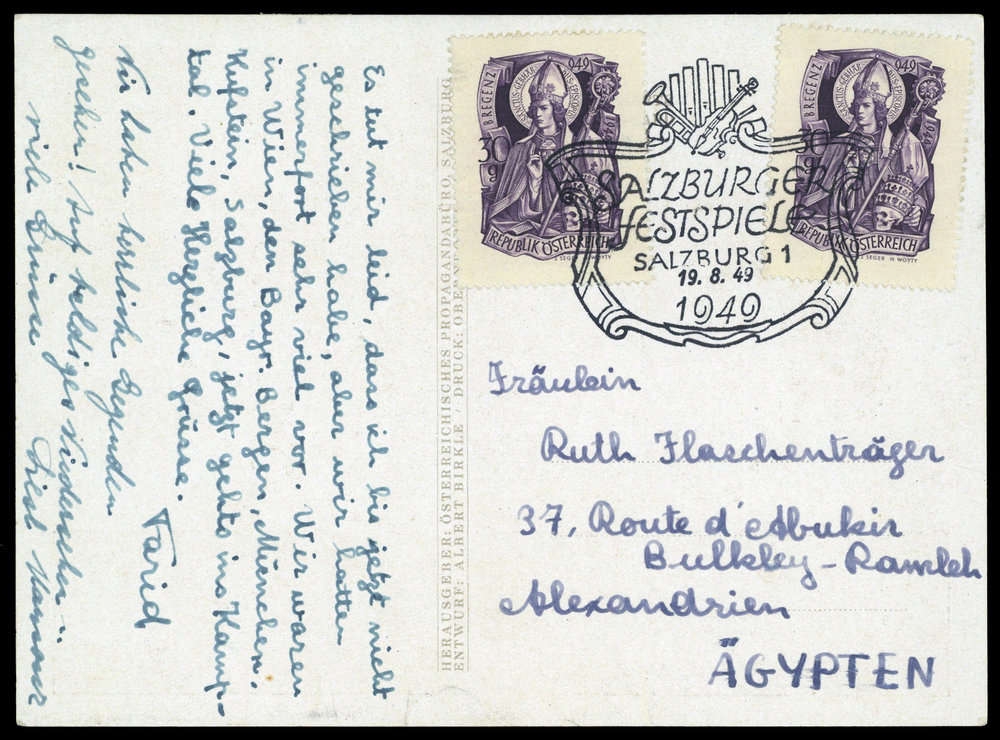 Es tut mir leid, dass ich bis jetzt nicht
geschrieben habe, aber wir hatten
immerfort sehr viel vor. Wir waren
in Wien, den Bayr. Bergen, München,
Kufstein, Salzburg, jetzt gehts ins Kamp-
tal. Viele Herzliche Grüsse.
Farid
Wir haben herrliche Gegenden
gesehen! Auf baldiges Wiedersehen
viele Grüsse
HERAUSGEBER: ÖSTERREICHISCHES PROPAGANDABÜRO, SALZBURG
ENTWURF: ALBERT BIRKLE / DRUCK:
BREGENZ 949
30 g
REPUBLIK ÖSTERREICH
BREGENZ 949
30
REPUBLIK ÖSTERREICH
SALZBURGER
FESTSPIELE
SALZBURG 1
19. 8. 49
1949
Fräulein
Ruth Flaschenträger
37, Route d'Abukir
Bulkley - Ramleh
Alexandrien
ÄGYPTEN